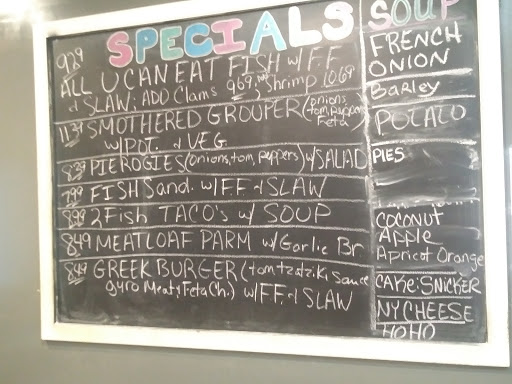 SPECIALS
929 ALL U CAN EAT FISH w/ FF
& SLAW; ADD Clams 969; Shrimp 1069
1129 SMOTHERED GROUPER (onions, tom, peppers Feta)
w/POT. & VEG.
829 PIEROGIES (onions, tom, peppers) w/ SALAD
799 FISH Sand. w/ FF & SLAW
899 2 Fish TACO's w/ SOUP
849 MEATLOAF PARM w/ Garlic Br
849 GREEK BURGER (tom tzatziki sauce
gyro Meat & Feta Ch.) w/ FF & SLAW
SOUP
FRENCH
ONION
Barley
POTATO
PIES
COCONUT
Apple
Apricot Orange
CAKE: SNICKER
NY CHEESE
HO HO